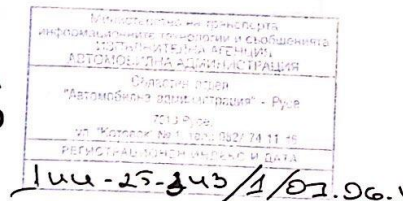 Министерство на транспорта
информационните технологии и съобщенията
ИЗПЪЛНИТЕЛНА АГЕНЦИЯ
АВТОМОБИЛНА АДМИНИСТРАЦИЯ
Областен отдел
"Автомобилна администрация" - Русе
7013 Русе
ул. "Котовск" № 1, 74 11
РЕГИСТРАЦИОНЕН ИНДЕКС И ДАТА